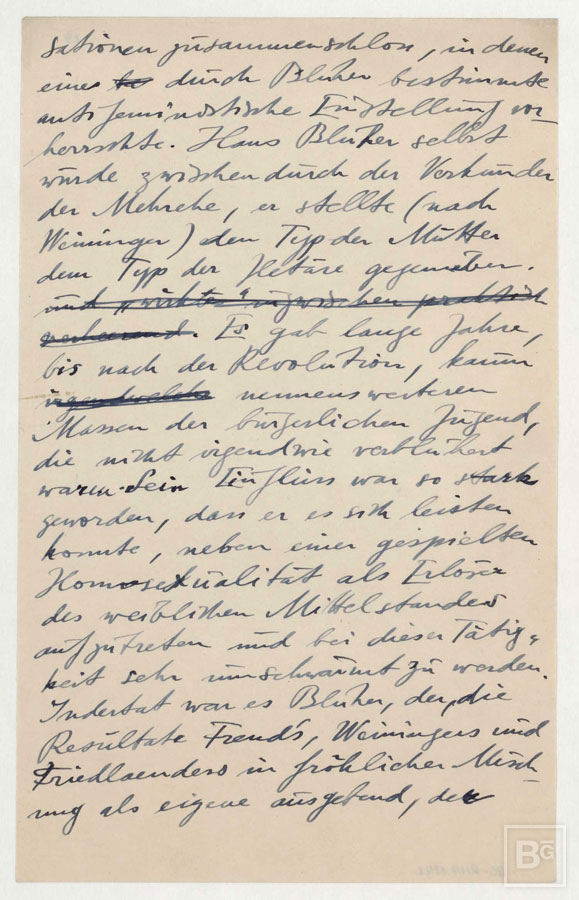 sationen zusammenschloss, in denen
eine durch Blüher bestimmte
antifeministische Einstellung vor-
herrschte. Hans Blüher selbst
wurde zwischendurch der Verkünder
der Mehrehe, er stellte (nach
Weininger) den Typ der Mutter
dem Typ der Hetäre gegenüber.
und „wirkte" inzwischen praktisch
verheerend. Es gab lange Jahre,
bis nach der Revolution, kaum
irgendwelche nennenswerteren
Massen der bürgerlichen Jugend,
die nicht irgendwie verblühert
waren. Sein Einfluss war so stark
geworden, dass er es sich leisten
konnte, neben einer gespielten
Homosexualität als Erlöser
des weiblichen Mittelstandes
aufzutreten und bei dieser Tätig-
keit sehr umschwärmt zu werden.
In der tat war es Blüher, der, die
Resultate Freud's, Weiningers und
Friedlaenders in fröhlicher Misch-
ung als eigene ausgebend, der
BG